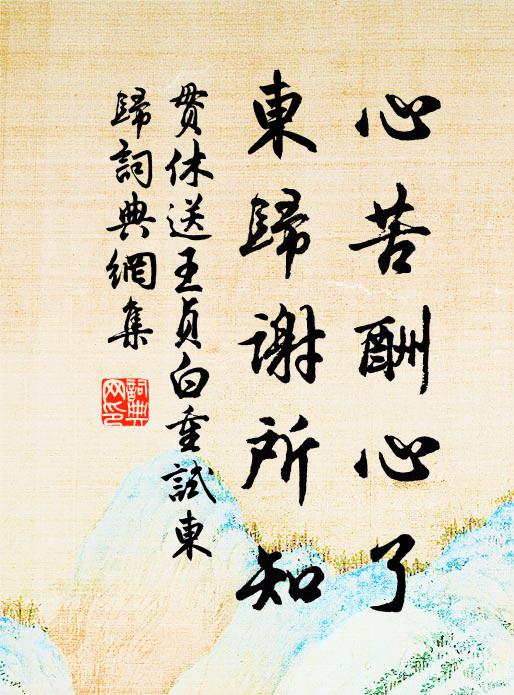 心苦酬心了
東歸謝所知
貫休送王貞白重試東
歸詞典網集
詞典
网印